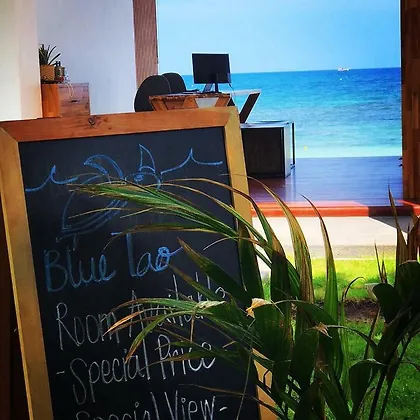 Blue Tao
Room Available
-Special Price
Special View-